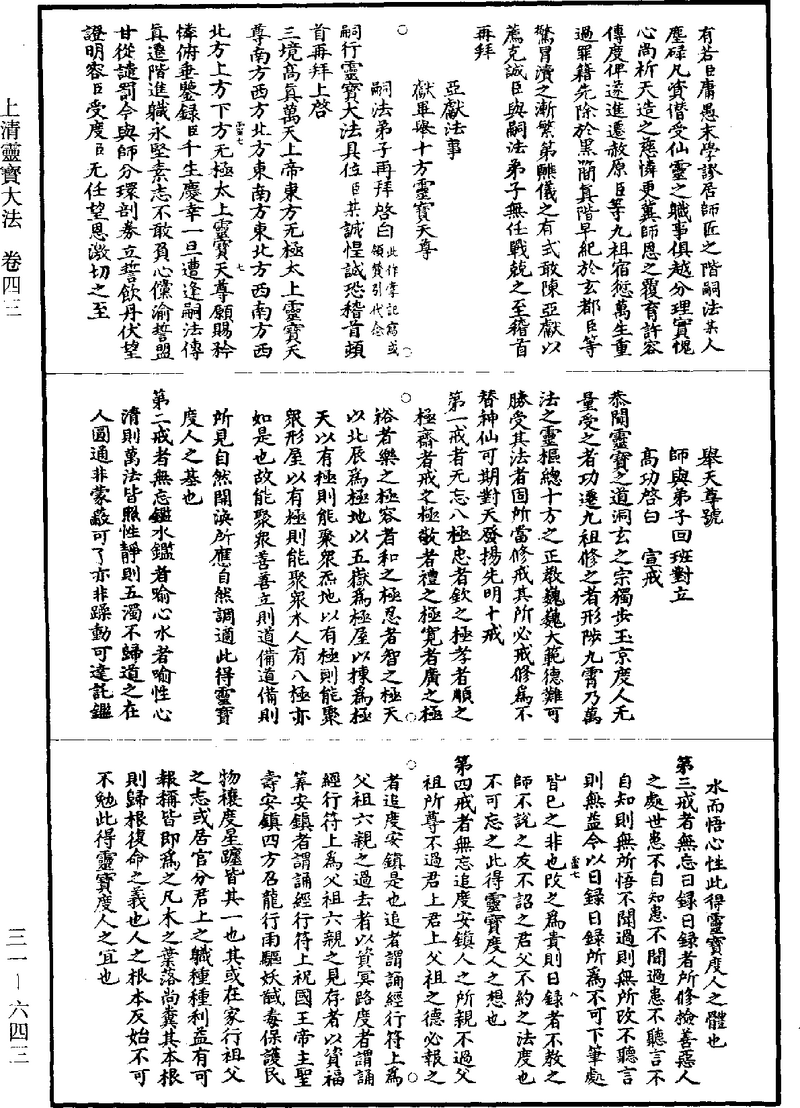 上清靈寶大法　卷四三
三一—六四三
有若臣庸愚末學謬居師匠之階嗣法某人
塵碌凡資僭受仙靈之職事俱越分理實愧
心尚祈天造之慈憐更冀師恩之覆育許容
傳度俾遂進遷赦原臣等九祖宿愆萬生重
過罪籍先除於黑簡真階早紀於玄都臣等
驚冒瀆之漸繁第醮儀之有式敢陳亞獻以
薦克誠臣與嗣法弟子無任戰兢之至稽首
再拜
亞獻法事
獻畢舉十方靈寶天尊
嗣法弟子再拜啓白此作掌記寫或領贊引代念
嗣行靈寶大法具位臣某誠惶誠恐稽首頓
首再拜上啓
三境高真萬天上帝東方无極太上靈寶天
尊南方西方北方東南方東北方西南方西
北方上方下方无極太上靈寶天尊願賜矜
憐俯垂鑒録臣千生慶幸一旦遭逢嗣法傳
真遷階進職永堅素志不敢負心儻渝誓盟
甘從譴罰今與師分環剖券立誓飲丹伏望
證明容臣受度臣无任望恩激切之至
舉天尊號
師與弟子回班對立
高功啓白　宣戒
恭聞靈寶之道洞玄之宗獨步玉京度人无
量受之者功遷九祖修之者形陟九霄乃萬
法之靈樞總十方之正教巍巍大範德難可
勝受其法者固所當修戒其所必戒修為不
替神仙可期對天發揚先明十戒
第一戒者无忘八極忠者欽之極孝者順之
極齋者戒之極敬者禮之極寬者廣之極
裕者樂之極容者和之極忍者智之極天
以北辰為極地以五嶽為極屋以棟為極
天以有極則能聚衆炁地以有極則能聚
衆形屋以有極則能聚衆木人有八極亦
如是也故能聚衆善善立則道備道備則
所見自然開渙所應自然調適此得靈寶
度人之基也
第二戒者無忘鑑水鑑者喻心水者喻性心
清則萬法皆照性靜則五濁不歸道之在
人圓通非蒙蔽可了亦非躁動可達託鑑
水而悟心性此得靈寶度人之體也
第三戒者無忘日録日録者所修檢善惡人
之處世患不自知患不聞過患不聽言不
自知則無所悟不聞過則無所改不聽言
則無益今以日録日録所為不可下筆處
皆已之非也改之為貴則日録者不教之
師不說之友不詔之君父不約之法度也
不可忘之此得靈寶度人之想也
第四戒者無忘追度安鎮人之所親不過父
祖所尊不過君上君上父祖之德必報之
者追度安鎮是也追者謂誦經行符上為
父祖六親之過去者以資冥路度者謂誦
經行符上為父祖六親之見存者以資福
筭安鎮者謂誦經行符上祝國王帝主聖
壽安鎮四方召龍行雨驅妖馘毒保護民
物禳度星躔皆其一也其或在家行祖父
之志或居官分君上之職種種利益有可
報稱皆即為之凡木之葉落尚糞其本根
則歸根復命之義也人之根本反始不可
不勉此得靈寶度人之宜也